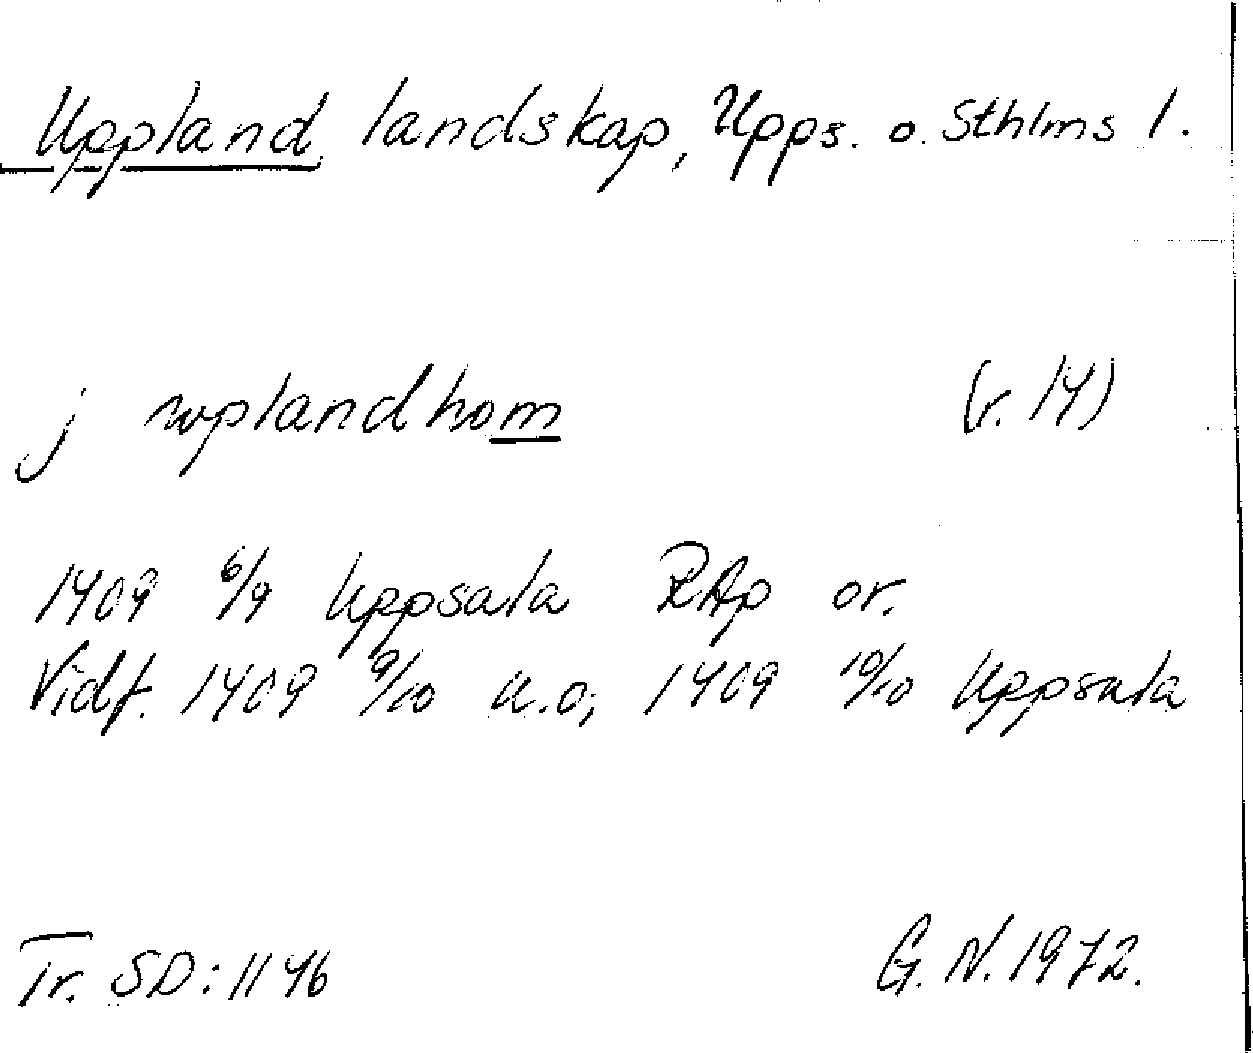 Uppland landskap, Upps. o. Sthlms l.
j wplandhom (r. 14)
1409 6/9 Uppsala RAp or.
Vidf. 1409 9/10 u.o; 1409 10/10 Uppsala
Tr. SD: 1146
G. N. 1972.